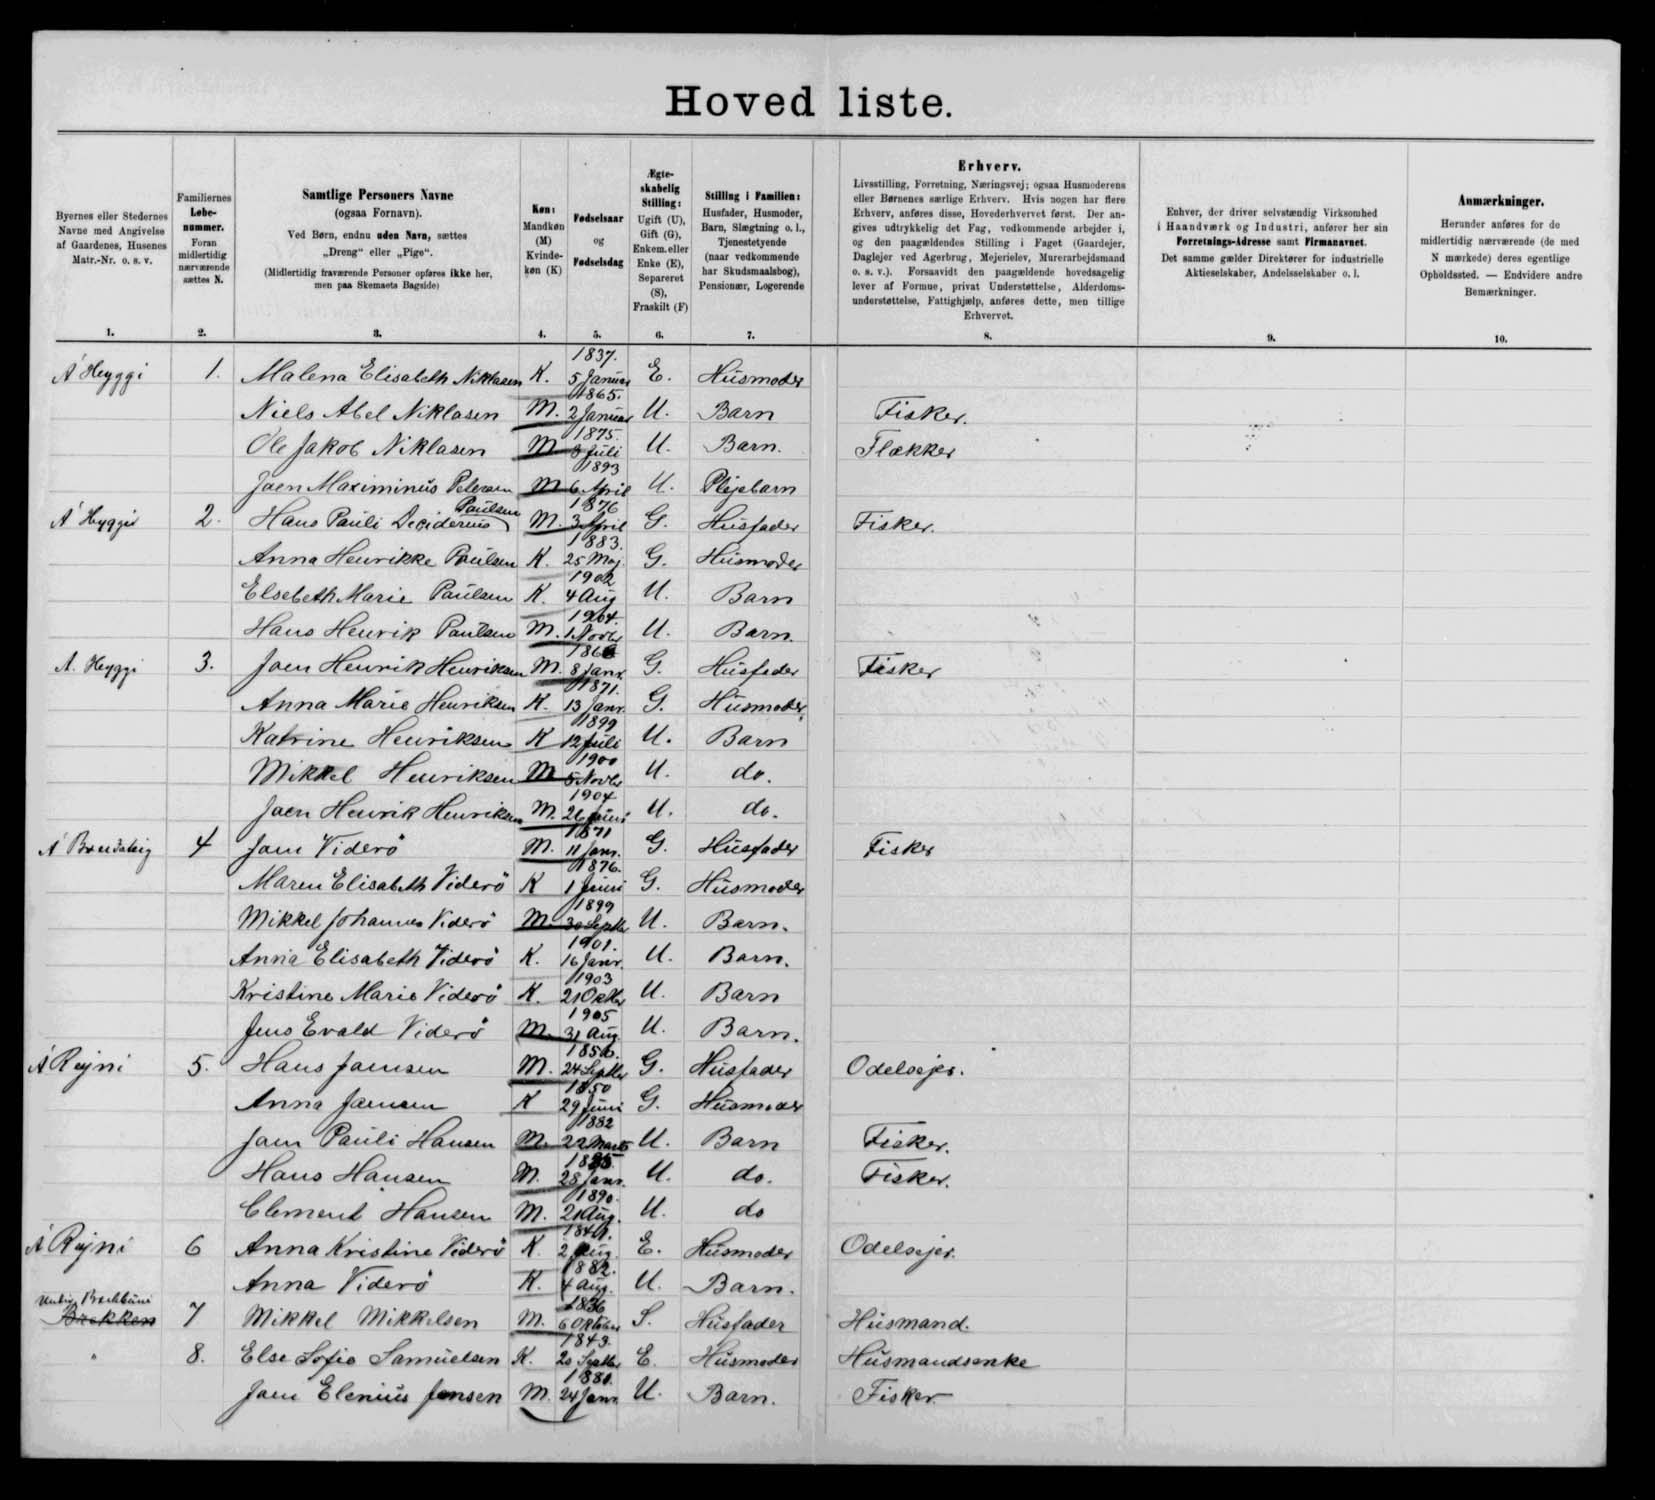 Hovedliste.
Byernes eller Stedernes
Navne med Angivelse
af Gaardenes, Husenes
Matr.-Nr. o. s. v.
1.
Familiernes
Løbe-
nummer.
Foran
midlertidig
nærværende
sættes N.
2.
Samtlige Personers Navne
(ogsaa Fornavn).
Ved Børn, endnu uden Navn, sættes
„Dreng“ eller „Pige“.
(Midlertidig fraværende Personer opføres ikke her,
men paa Skemaets Bagside)
3.
Køn:
Mandkøn
(M)
Kvinde-
køn (K)
4.
Fødselsaar
og
Fødselsdag
5.
Ægte-
skabelig
Stilling:
Ugift (U),
Gift (G),
Enkem. eller
Enke (E),
Separeret
(S),
Fraskilt (F)
6.
Stilling i Familien:
Husfader, Husmoder,
Barn, Slægtning o. l.,
Tjenestetyende
(naar vedkommende
har Skudsmaalsbog),
Pensionær, Logerende
7.
Erhverv.
Livsstilling, Forretning, Næringsvej; ogsaa Husmoderens
eller Børnenes særlige Erhverv. Hvis nogen har flere
Erhverv, anføres disse, Hovederhvervet først. Der an-
gives udtrykkelig det Fag, vedkommende arbejder i,
og den paagældendes Stilling i Faget (Gaardejer,
Daglejer ved Agerbrug, Mejerielev, Murerarbejdsmand
o. s. v.). Forsaavidt den paagældende hovedsagelig
lever af Formue, privat Understøttelse, Alderdoms-
understøttelse, Fattighjælp, anføres dette, men tillige
Erhvervet.
8.
Enhver, der driver selvstændig Virksomhed
i Haandværk og Industri, anfører her sin
Forretnings-Adresse samt Firmanavnet.
Det samme gælder Direktører for industrielle
Aktieselskaber, Andelsselskaber o. l.
9.
Anmærkninger.
Herunder anføres for de
midlertidig nærværende (de med
N mærkede) deres egentlige
Opholdssted. — Endvidere andre
Bemærkninger.
10.
Á Heyggi 1. Malena Elisabeth Niklasen K. 1837. 5 Januar E. Husmoder
Niels Abel Niklasen M. 1865. 2 Januar U. Barn Fisker.
Ole Jakob Niklasen M 1875. 3 Juli U. Barn. Flækker
Joen Maximinus Petersen M 1893 6 April U. Plejebarn
Á Heyggi 2. Hans Pauli Deciderius Paulsen M. 1876 3 April G. Husfader Fisker.
Anna Henrikke Paulsen K. 1883. 25 Maj G. Husmoder
Elsebeth Marie Paulsen K. 1902 4 Aug U. Barn
Hans Henrik Paulsen M. 1904. 1 Novbr U. Barn.
Á. Heyggi 3. Joen Henrik Henriksen M. 8 Janr. G. Husfader Fisker
Anna Marie Henriksen K. 1871. 13 Janr. G. Husmoder
Katrine Henriksen K 1899 12 Juli U. Barn
Mikkel Henriksen M 1900 5 Novbr U. do.
Joen Henrik Henriksen M. 1904 26 Juni U. do.
4 Joen Viderö M. 1871 11 Janr. G. Husfader Fisker
Maren Elisabeth Viderö K 1876. 1 Juni G. Husmoder
Mikkel Johannes Viderö M. 1899 30 Septbr U. Barn.
Anna Elisabeth Viderö K. 1901. 16 Janr. U. Barn.
Kristine Marie Viderö K. 1903 21 Oktbr U. Barn
Jens Evald Viderö M. 1905 31 Aug. U. Barn.
Á Rejni 5. Hans Joensen M. 1856. 24 Septbr G. Husfader Odelsejer.
Anna Joensen K 1850 29 Juni G. Husmoder
Joen Pauli Hansen M. 1882 22 Marts U. Barn Fisker.
Hans Hansen M. 1885. 28 Janr. U. do. Fisker.
Clement Hansen M. 1890. 21 Aug. U. do
Á Rejni 6 Anna Kristine Viderö K. 2 Aug. E. Husmoder Odelsejer.
Anna Viderö K. 1882. 4 Aug. U. Barn.
Brekken 7 Mikkel Mikkelsen M. 1836 6 Oktober S. Husfader Husmand.
" 8. Else Sofie Samuelsen K. 1843. 20 Septbr E. Husmoder Husmandsenke
Joen Elenius Jensen M. 1881. 24 Janr. U. Barn. Fisker